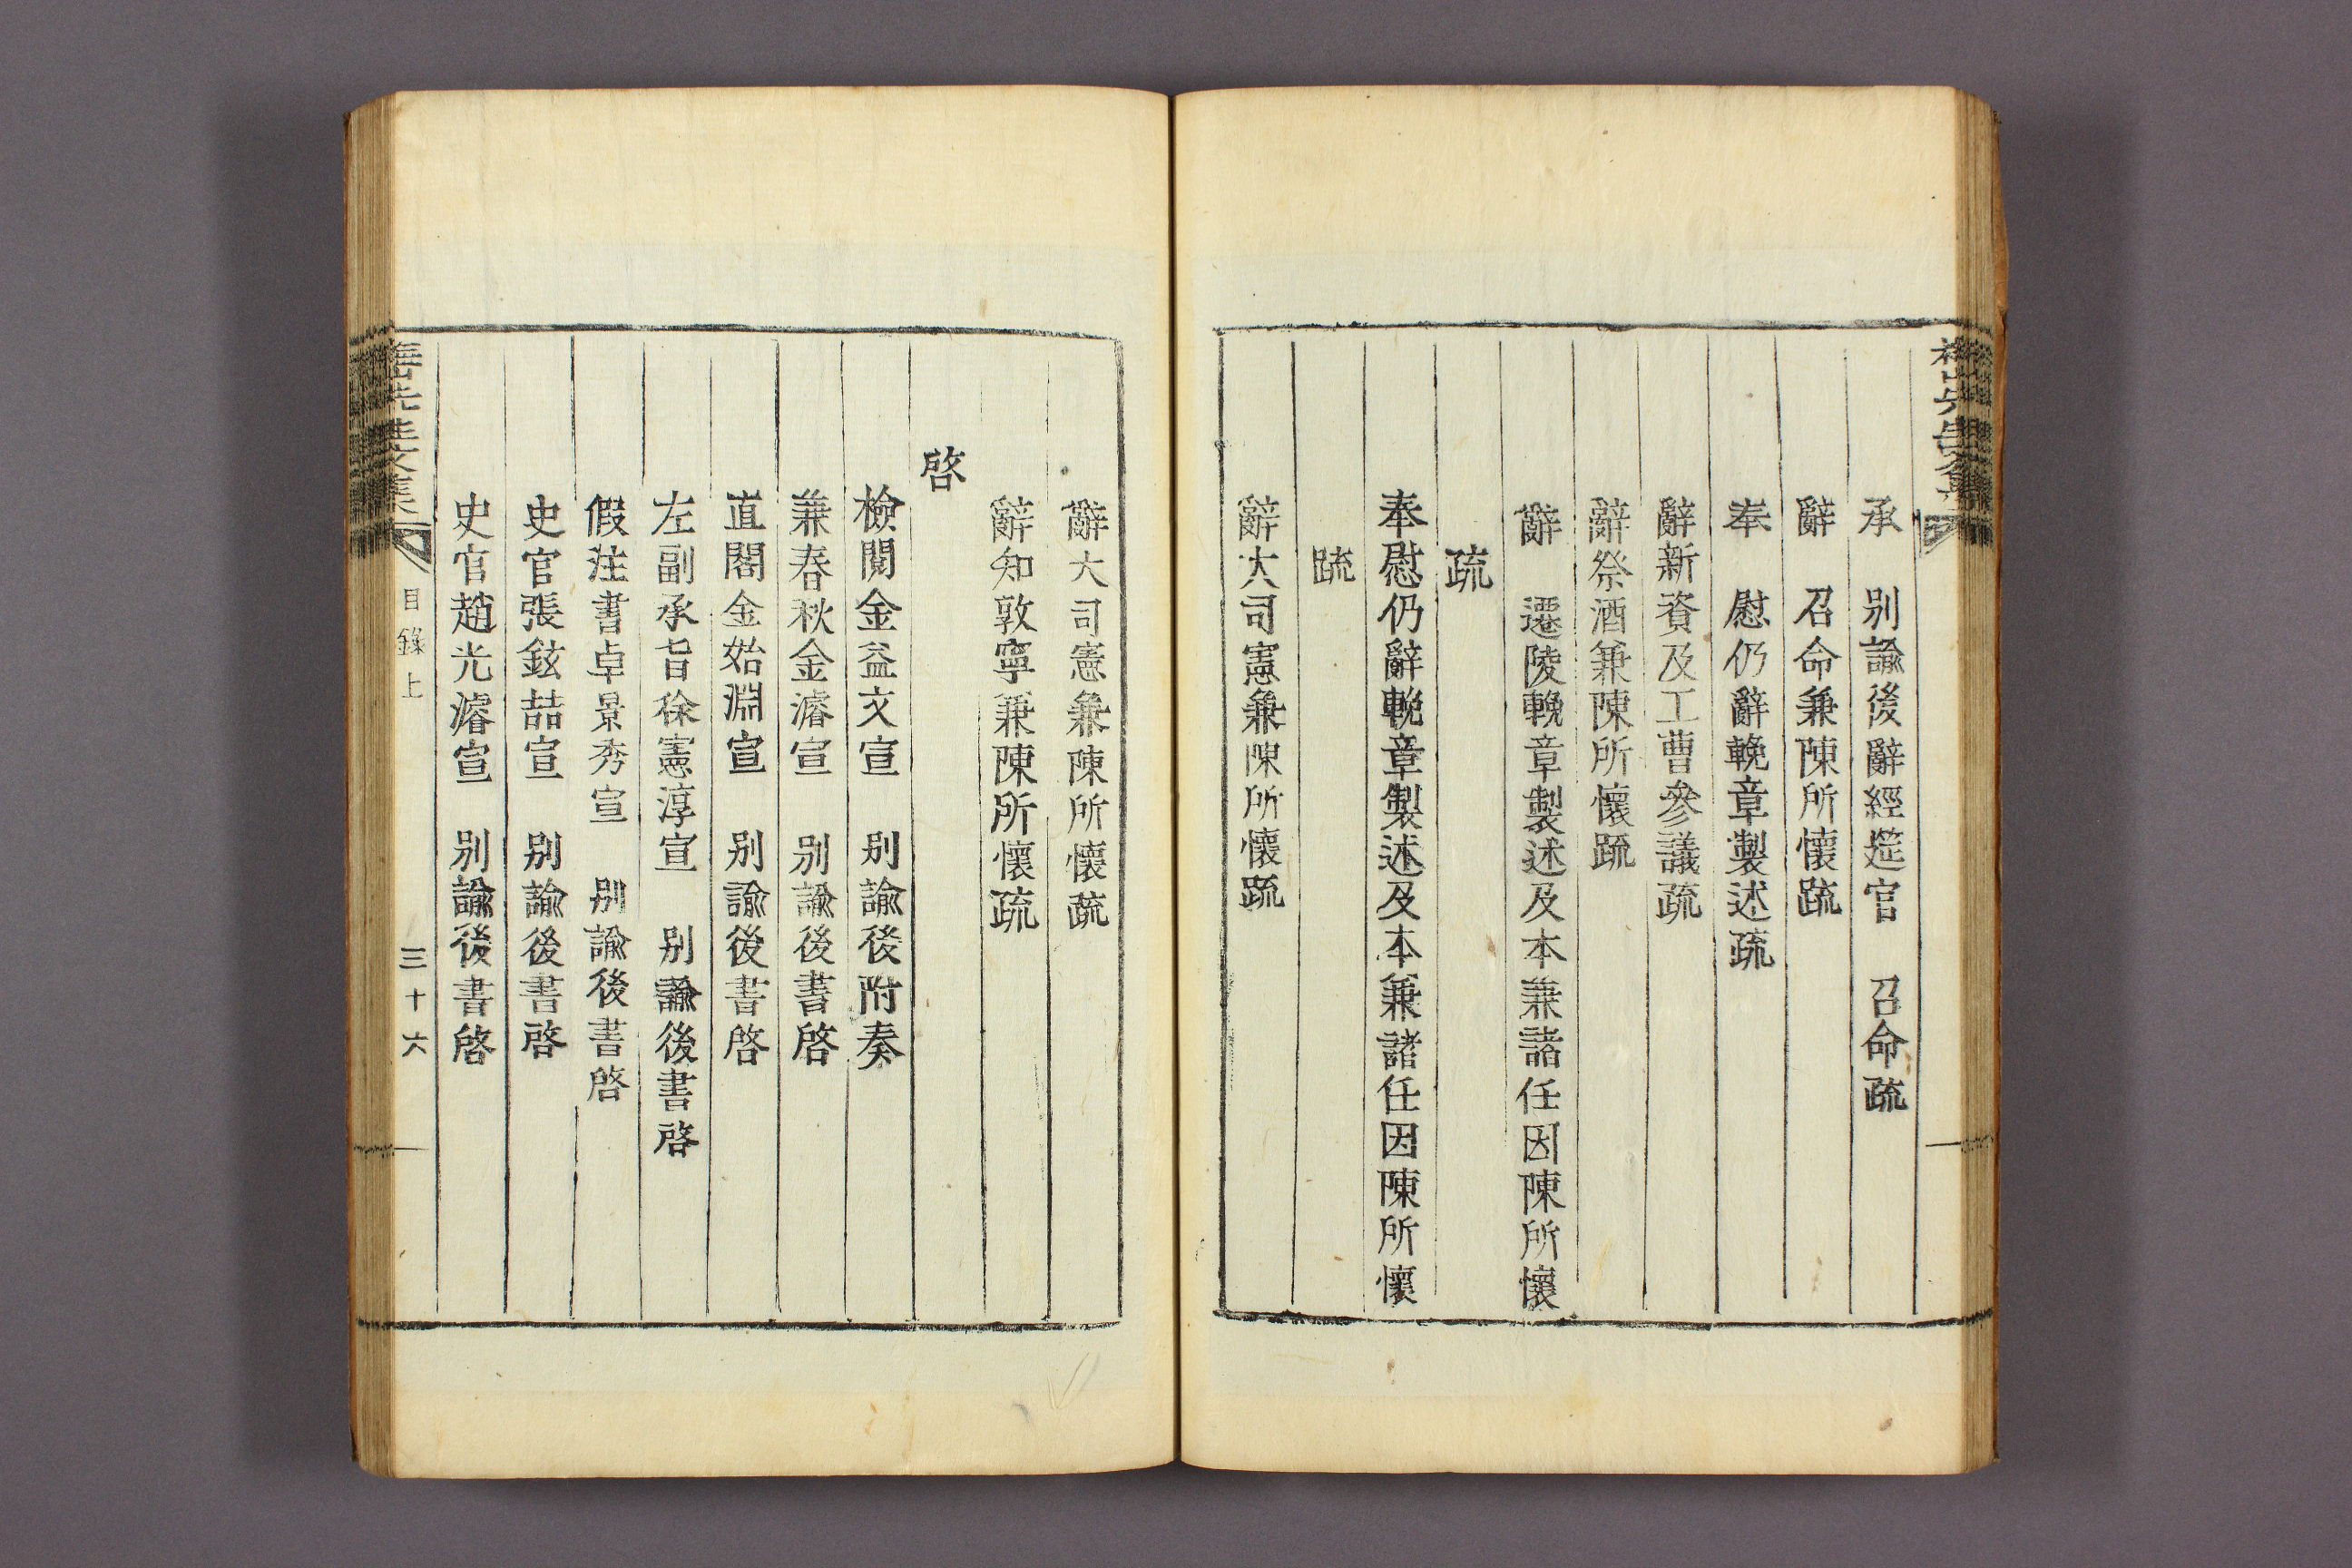 承　別諭後辭經筵官　召命疏
辭　召命兼陳所懷疏
奉　慰仍辭輓章製述疏
辭新資及工曹參議疏
辭祭酒兼陳所懷疏
辭　遷陵輓章製述及本兼諸任因陳所懷
疏
奉慰仍辭輓章製述及本兼諸任因陳所懷
疏
辭大司憲兼陳所懷疏
辭大司憲兼陳所懷疏
辭知敦寧兼陳所懷疏
啓
檢閱金益文宣　別諭後附奏
兼春秋金濬宣　別諭後書啓
直閣金始淵宣　別諭後書啓
左副承旨徐憲淳宣　別諭後書啓
假注書卓景秀宣　別諭後書啓
史官張鉉喆宣　別諭後書啓
史官趙光濬宣　別諭後書啓
山先生文集
目錄上
三十六